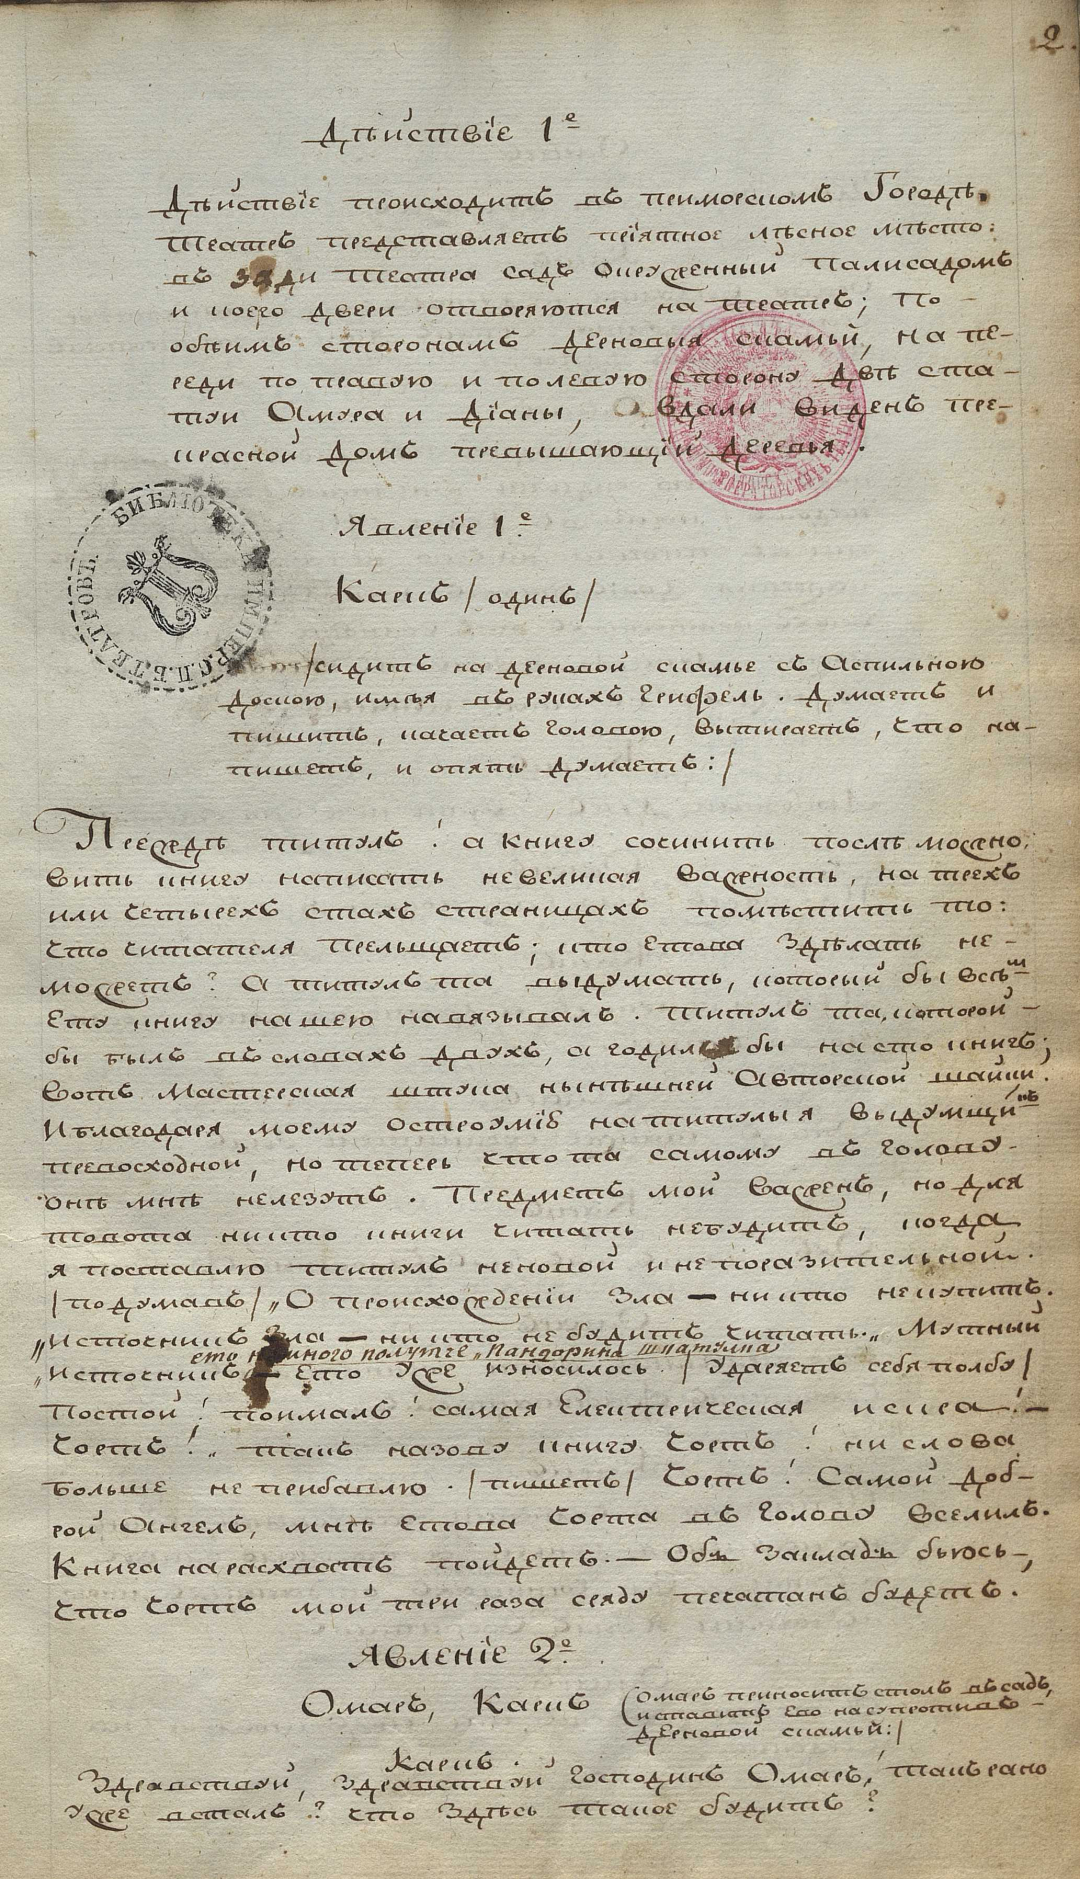 2.
Дѣйствіе 1е
Дѣйствіе происходитъ въ приморскомъ Городѣ.
Театръ представляетъ пріятное лѣсное мѣсто:
въ зади театра садъ окруженный палисадомъ
и коего двери отворяются на театръ; По
обѣимъ сторонамъ дерновыя скамьи, на пе-
реди по правую и полевую сторону двѣ ста-
туи Амура и Діаны, вдали виденъ пре-
красной домъ превышающій деревья.
Явленіе 1е
БИБЛІОТЕКА ИМПЕР. С.П.Б. ТЕАТРОВЪ.
Карлъ /одинъ/
/сидитъ на дерновой скамье съ Аспильною
доскою, имѣя въ рукахъ Грифель. Думаетъ и
пишитъ, качаетъ головою, вытираетъ, что на-
пишетъ, и опять думаетъ:/
Прежде титулъ! а книгу сочинить послѣ можно;
вить книгу написать невеликая важность, на трехъ
или четырехъ стахъ страницахъ помѣстить то:
что читателя прельщаетъ; кто етова здѣлать не-
можетъ? А титулъ та выдумать, который бы всѣмъ
ету книгу нашею навязывалъ. Титулъ та, которой-
бы былъ въ словахъ двухъ, а годился бы на сто книгъ;
вотъ Мастерская штука нынѣшней Авторской шайки!
И благодаря моему остроумію на титулы я выдумщикъ
превосходной, но теперь что та самому въ голову-
онѣ мнѣ нелезутъ. Предметъ мой важенъ, но для
товота никто книги читать небудитъ, когда
я поставлю титулъ неновой и непоразительной.
/подумавъ/ „О происхожденіи Зла — никто некупитъ.
„Источникъ Зла — никто не будитъ читать.„ Мутный
ето немного полутче „Пандорина шкатулка
„Источникъ — Ето уже износилось. /Ударяетъ себя полбу/
Постой! поималъ! самая Електрическая искра!—
Чортъ!„ такъ назову книгу Чортъ! ни слова
больше не прибавлю. /пишетъ/ Чортъ! Самой доб-
рой Ангелъ, мнѣ етова Чорта въ голову вселилъ.
Книга нарасхватъ пойдетъ. — Объ закладъ бьюсь-,
что Чортъ мой три раза сряду печатанъ будетъ.
Явленіе 2е
Омаръ, Карлъ (Омаръ приноситъ столъ въ садъ,
и ставитъ его насупротивъ-
дерновой скамьи:/
Карлъ.
Здравствуй, здравствуй Господинъ Омаръ! такъ рано
уже всталъ? что здѣсь такое будитъ?